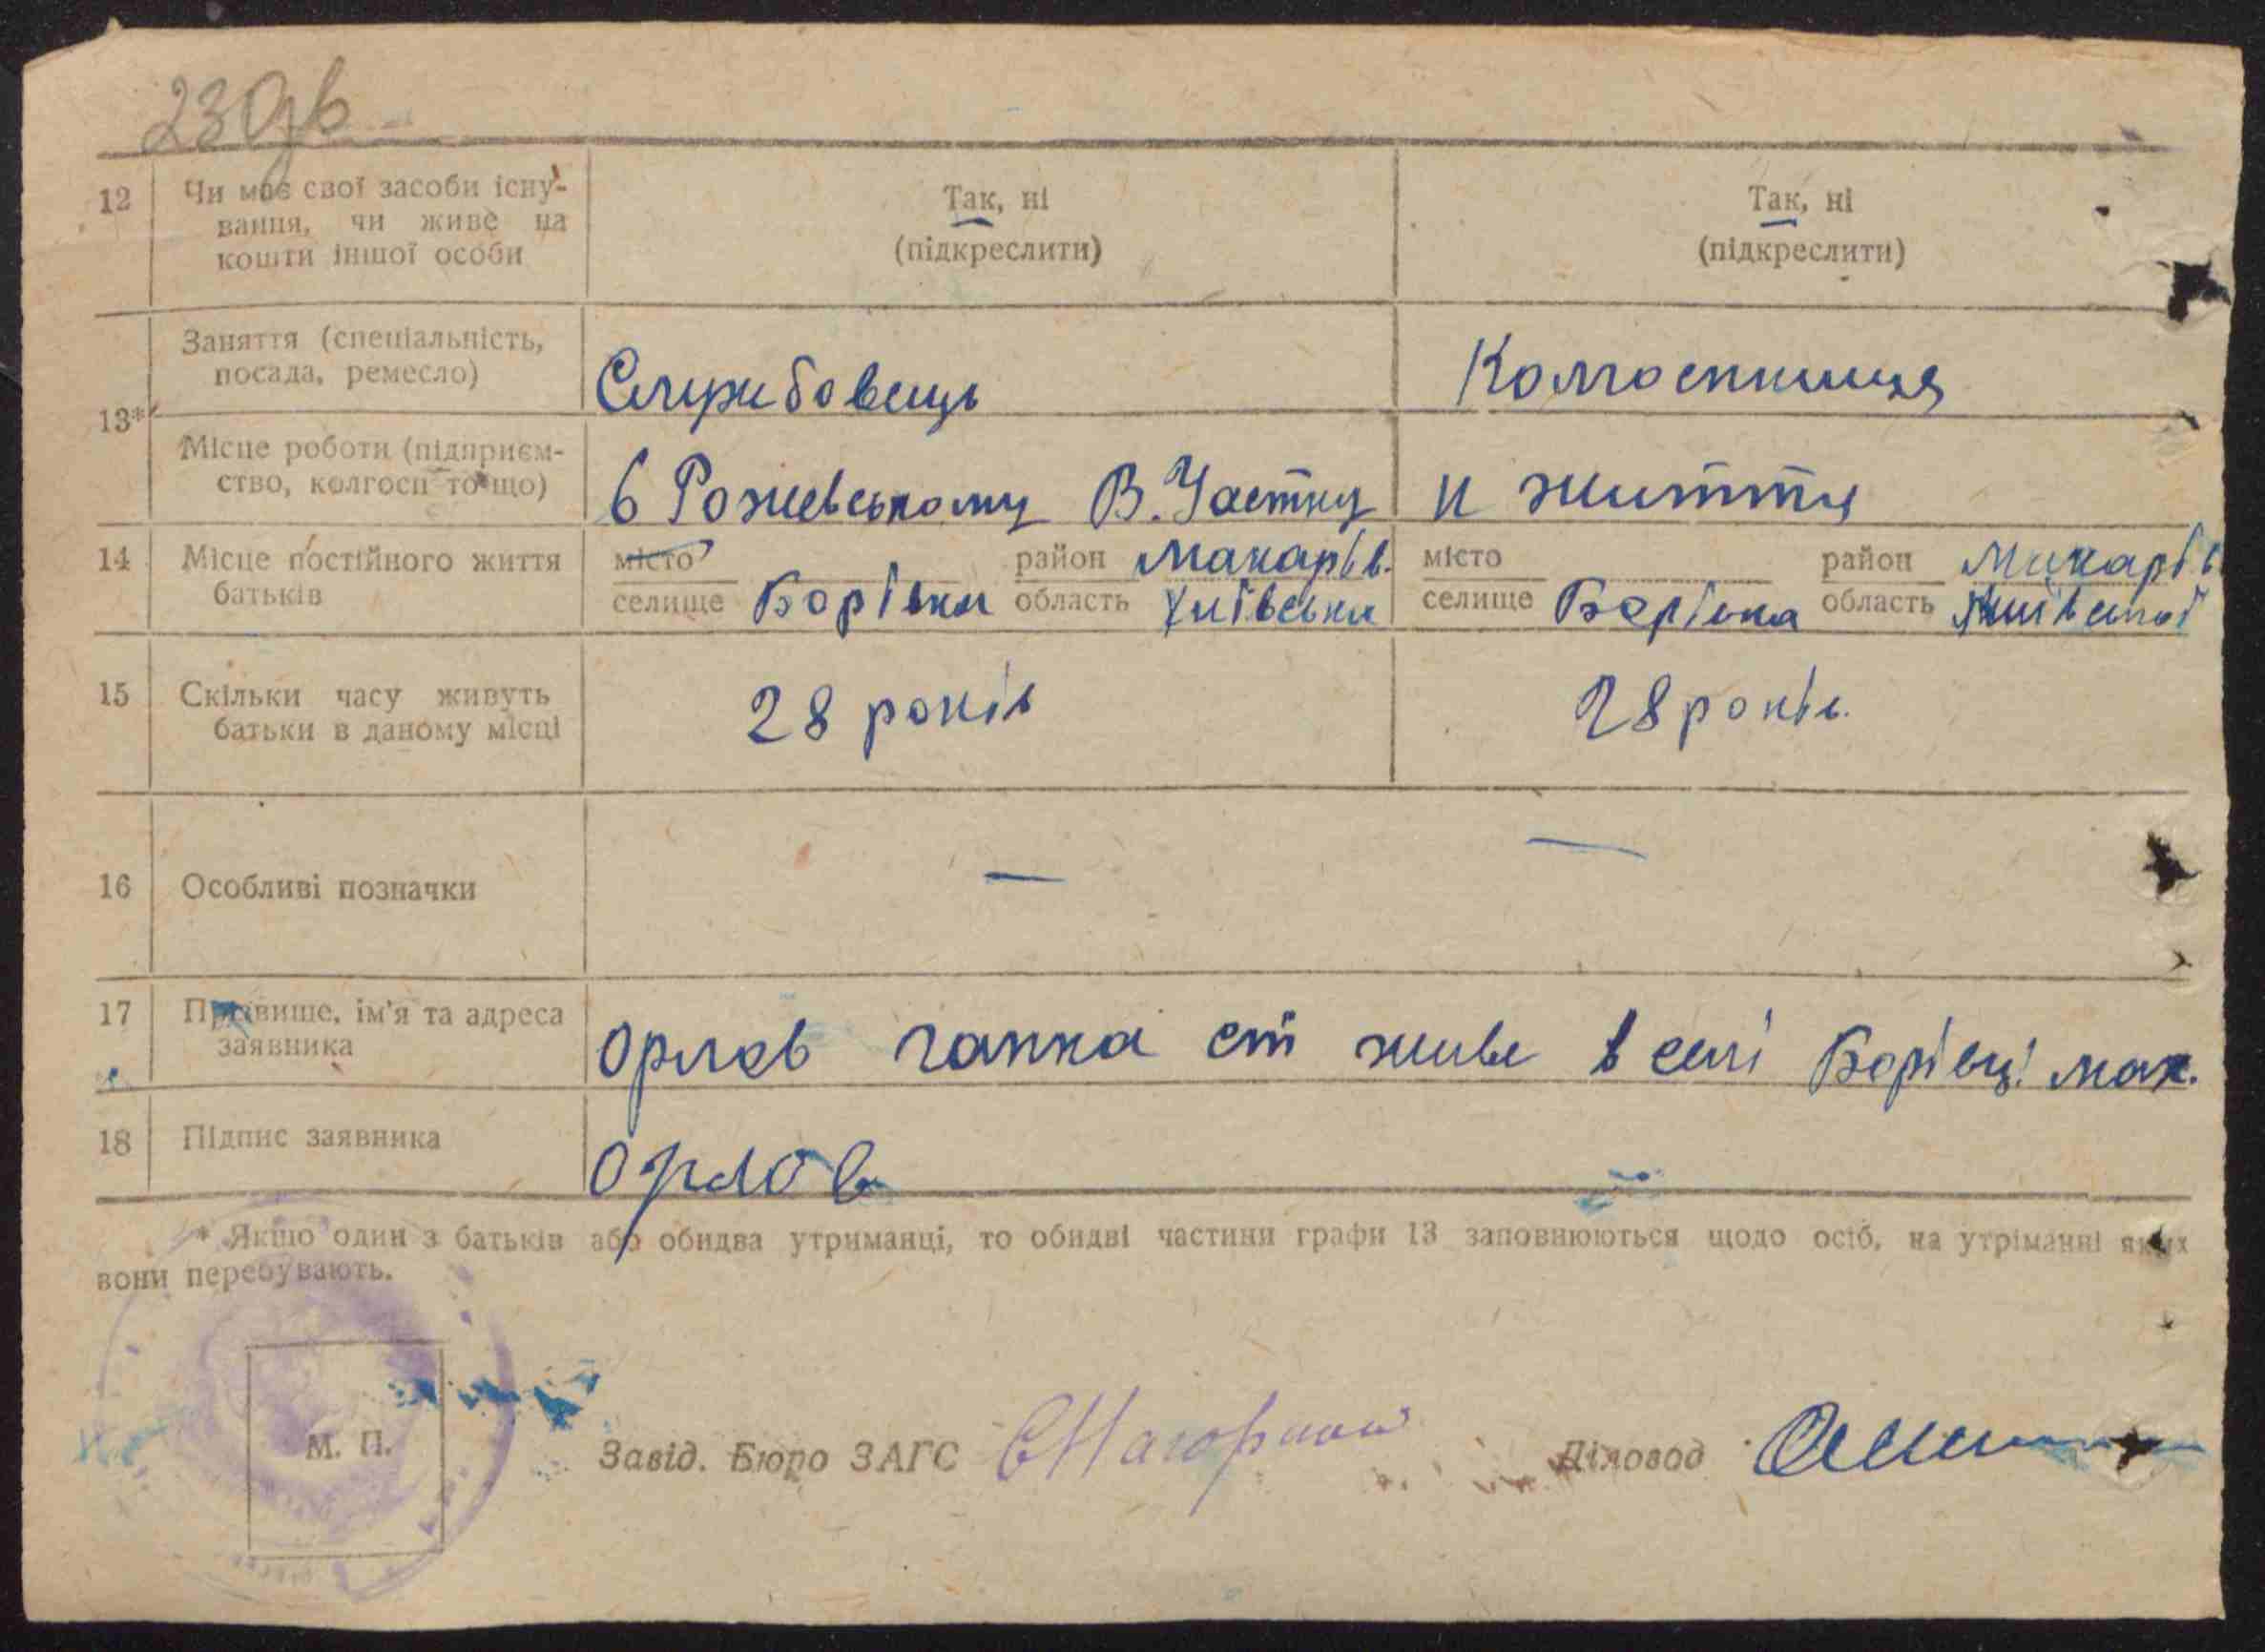 230
12 Чи має свої засоби існу- Так, ні Так, ні
вання, чи живе на (підкреслити) (підкреслити)
кошти іншої особи
Заняття (спеціальність,
посада, ремесло) Службовець Колгоспниця
13*
Місце роботи (підприєм-
ство, колгосп тощо) в Рожевському В. Частку и життя
14 Місце постійного життя місто район Макарів. місто район Макарів
батьків селище Борівка область Київська селище Борівка область Київської
15 Скільки часу живуть 28 років 28 років.
батьки в даному місці
16 Особливі позначки — —
17 Прізвище, ім'я та адреса
заявника Орлов ганка ст живе в селі Борівці мак.
18 Підпис заявника Орлов
* Якщо один з батьків або обидва утриманці, то обидві частини графи 13 заповнюються щодо осіб, на утріманні яких
вони перебувають.
М. П. Завід. Бюро ЗАГС Діловод